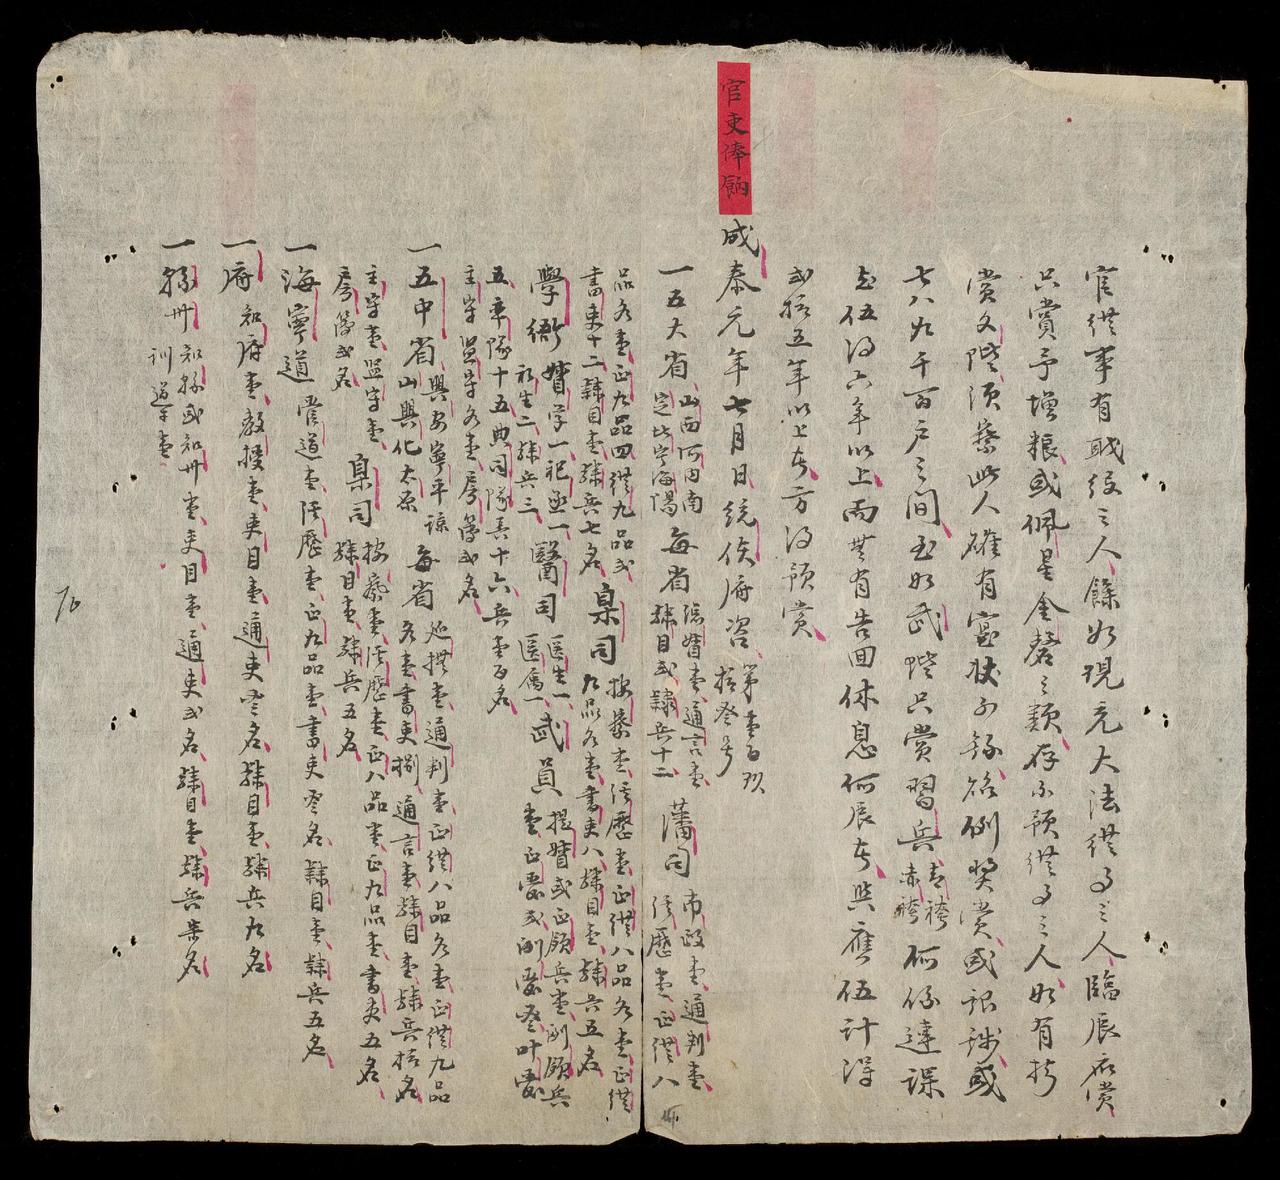 官從事有職役之人餘如現充大法從事之人臨辰広賞
只賞予增粮或佩星金磬之類存不預從事之人如有於
賞文階須察此人確有寔狀方錄銘例奬賞或銀錢或
七八九千百戶之間至如武階只賞習兵青袴赤袴何係違誤
壱伍得六年以上而無有告回休息何辰者與應伍計得
弍拾五年以上者方得預賞
官吏俸餉
成泰元年七月日統使府咨第壹百玖拾叄号
一五大省山西河内南定北寧海陽每省總督壹通言壹隸目弍隸兵十二藩司布政壹通判壹經歷壹正從八
品各壹正九品四從九品弍書吏十二隸目壹隸兵七名臬司按察壹經歷壹正從八品各壹正從九品各壹書吏八隸目壹隸兵五名
學衙督学一祀丞一礼生二隸兵三醫司医生一医属一武員提督弍正領兵壹副領兵壹正管弍副管叄叶管
五率隊十五典司隊長十六兵壹百名
主守監守各壹房簿弍名
一五中省興安寧平諒山興化太原每省巡撫壹通判壹正從八品各壹正從九品各壹書吏捌通言壹隸目壹隸兵拾名
主守壹監守壹房簿弍名臬司按察壹經歷壹正八品壹正九品壹書吏五名隸目壹隸兵五名
一海寧道管道壹經歷壹正九品壹書吏叄名隸目壹隸兵五名
一府知府壹教授壹吏目壹通吏叄名隸目壹隸兵九名
一縣州知縣或知州壹吏目壹通吏弍名隸目壹隸兵柒名
訓導壹